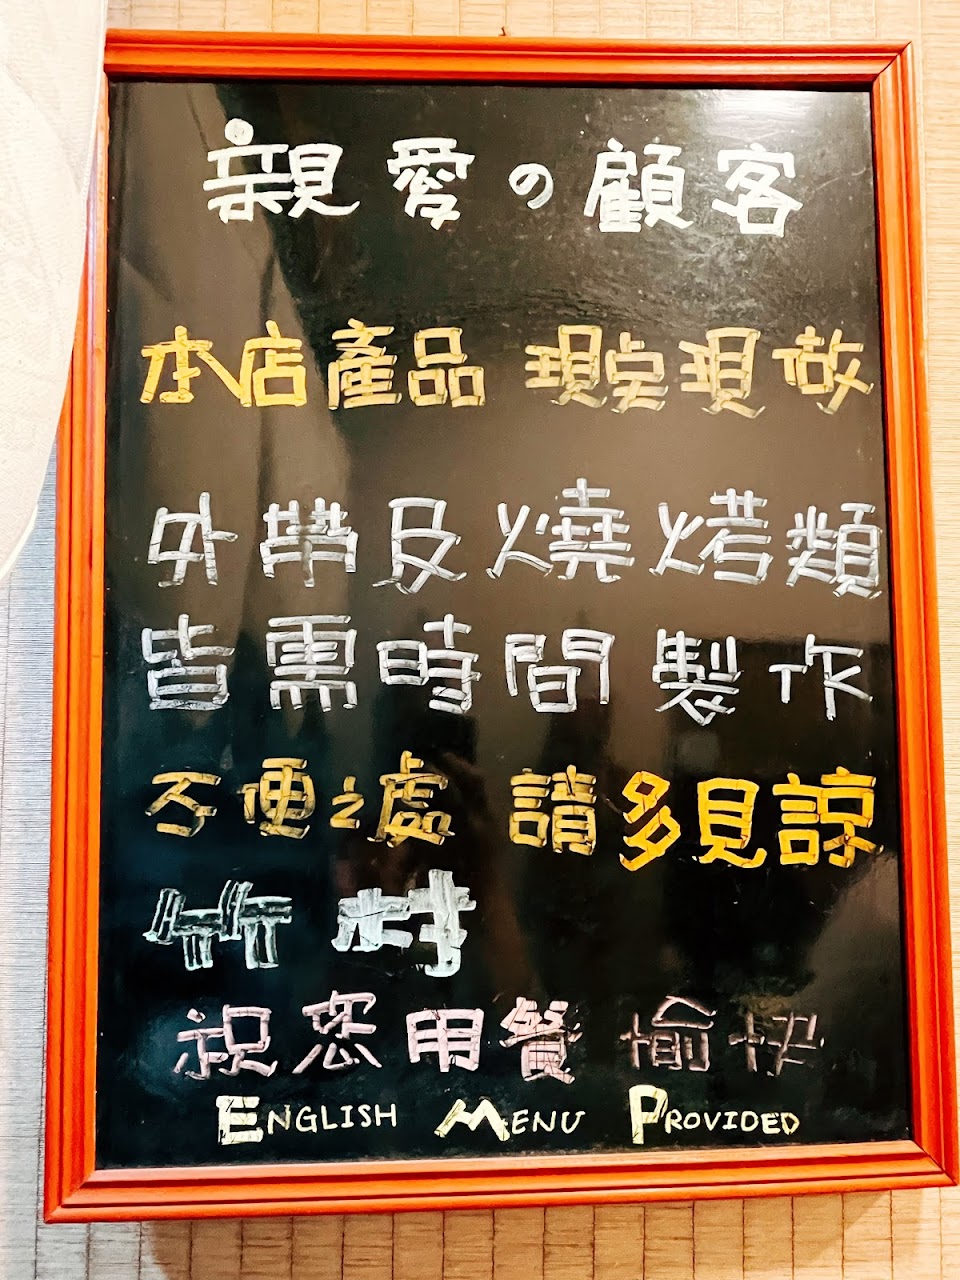 親愛の顧客
本店產品 現点現做
外帶及燒烤類
皆需時間製作
不便之處 請多見諒
竹村
祝您用餐愉快
ENGLISH MENU PROVIDED